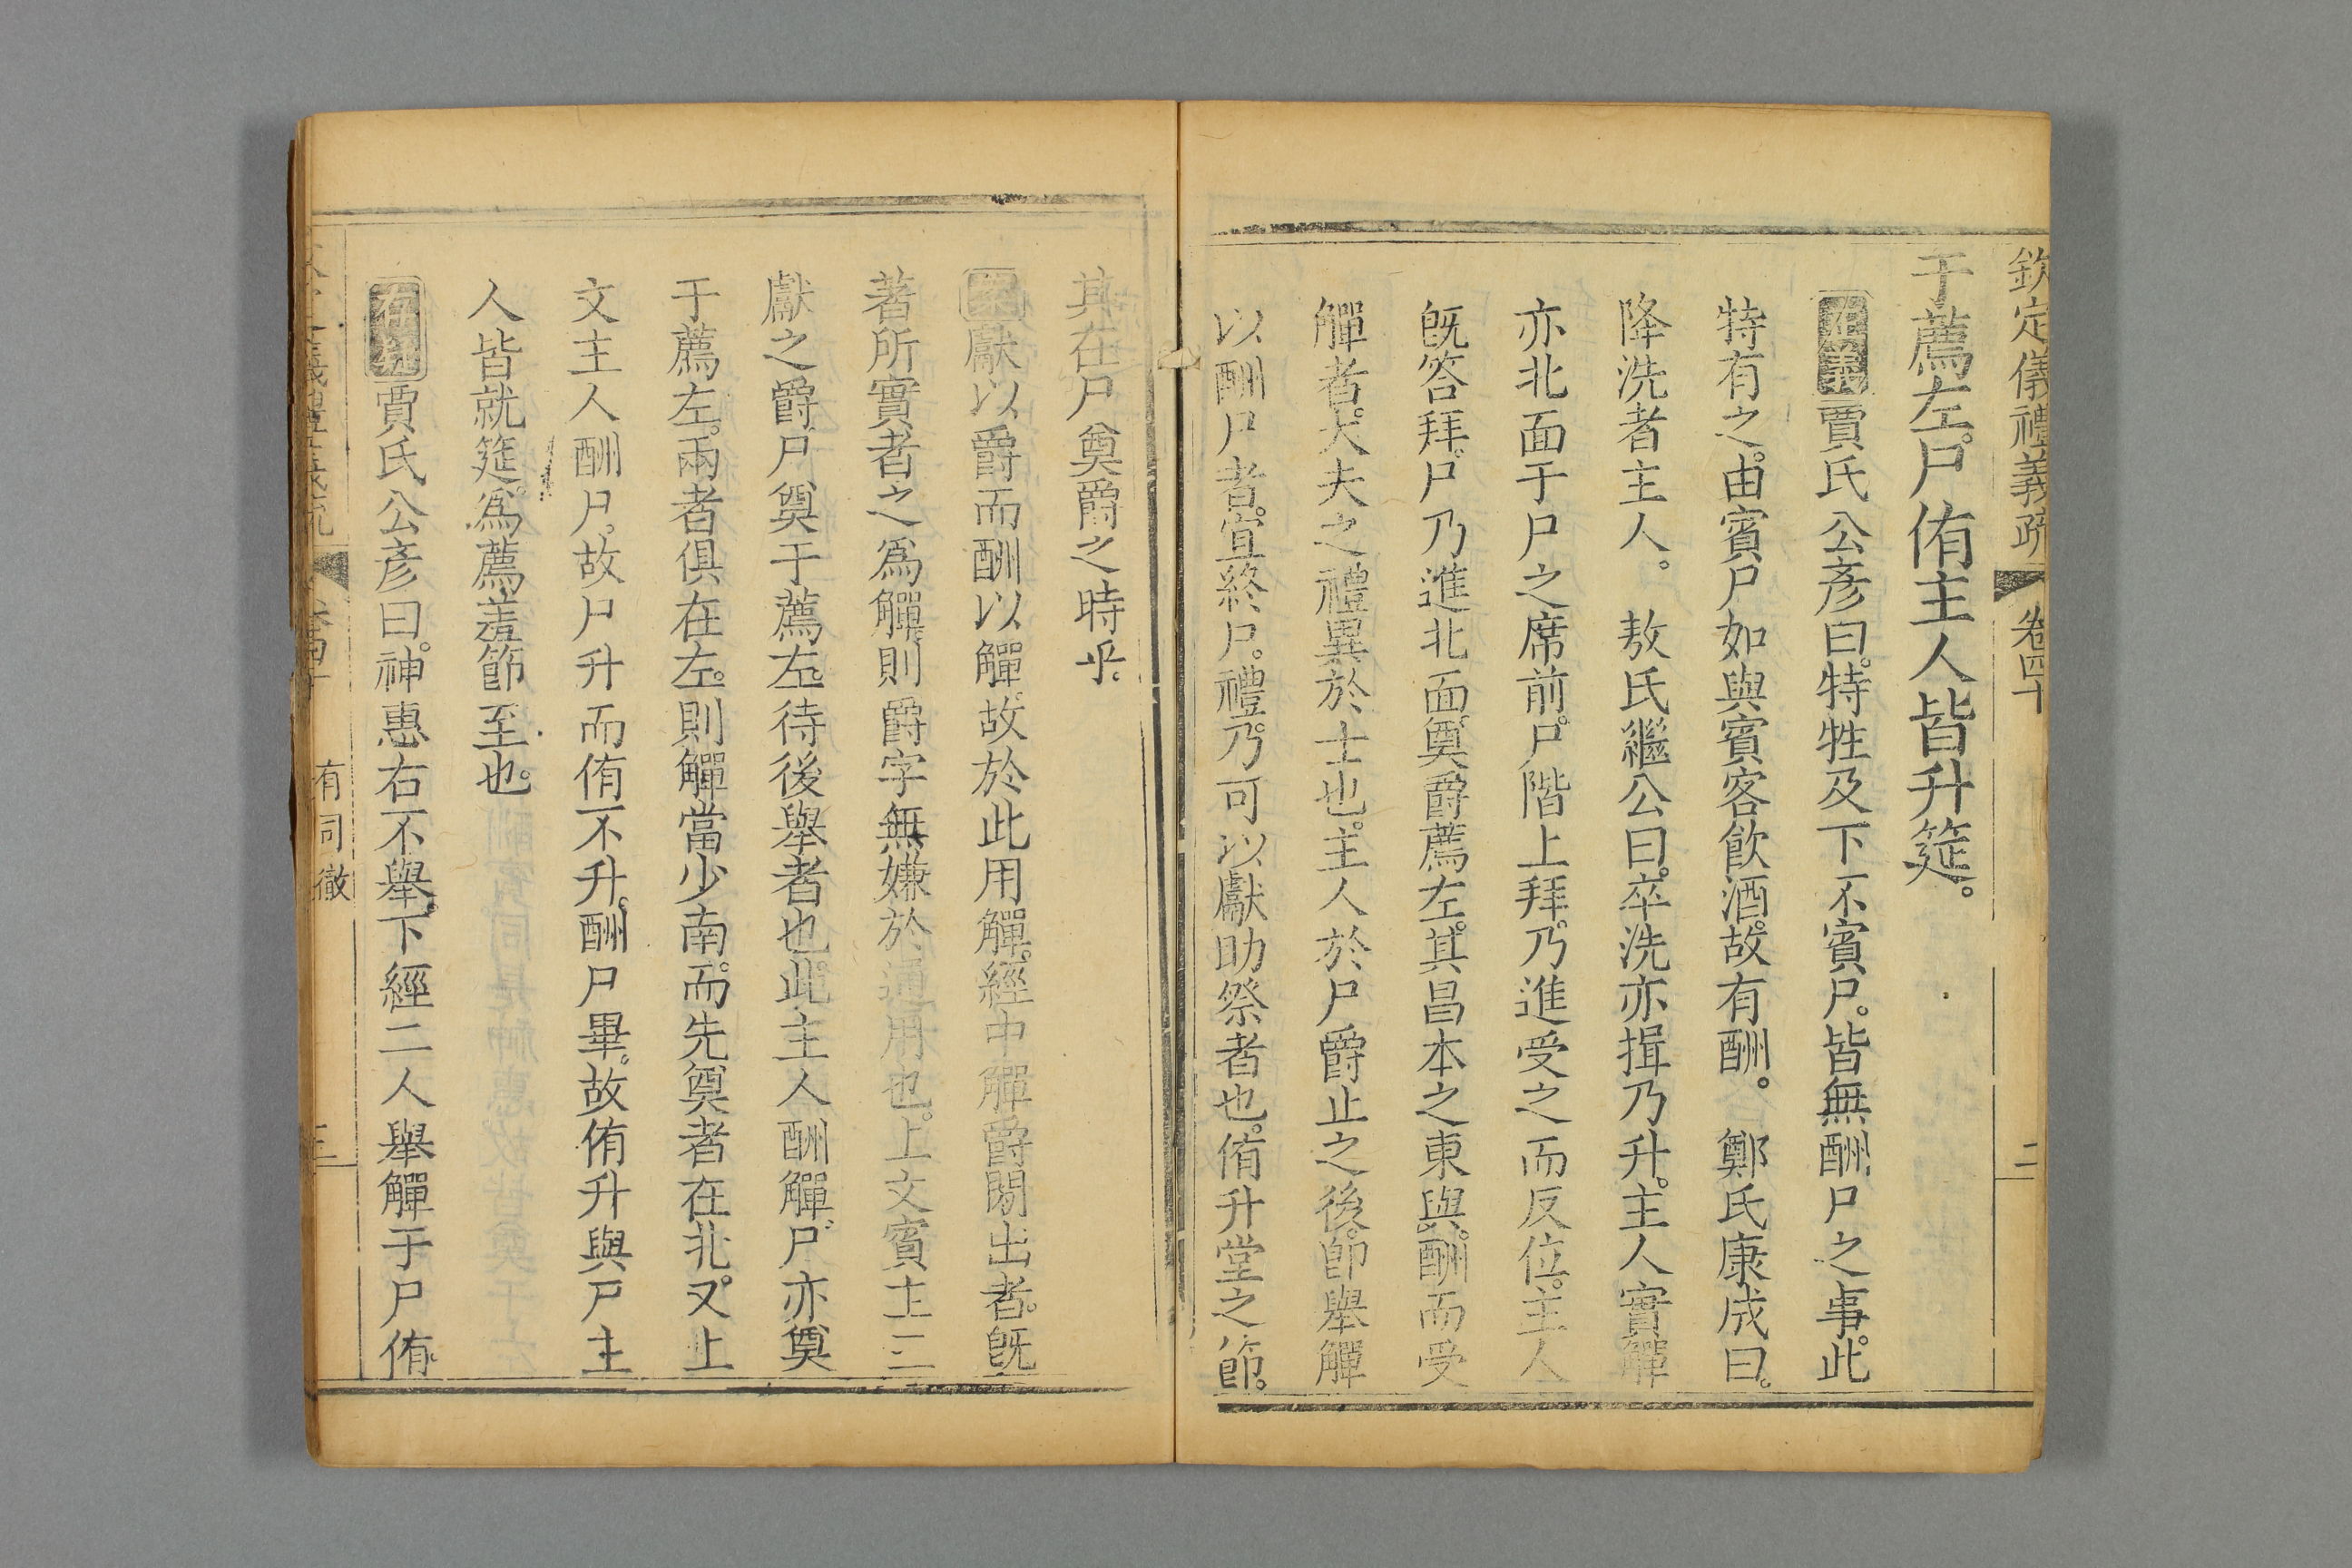 欽定儀禮義疏 卷四十 二
于薦左。尸侑主人皆升筵。
正義賈氏公彥曰。特牲及下不賓尸。皆無酬尸之事。此
特有之。由賓尸如與賓客飲酒。故有酬。 鄭氏康成曰。
降洗者主人。 敖氏繼公曰。卒洗亦揖乃升。主人實觶
亦北面于尸之席前。尸階上拜。乃進受之而反位。主人
既答拜。尸乃進北面。奠爵薦左。其昌本之東與。酬而受
觶者。大夫之禮異於士也。主人於尸爵止之後。卽舉觶
以酬尸者。宜終尸。禮乃。可以獻助祭者也。侑升堂之節。
其在尸奠爵之時乎。
案獻以爵而酬以觶。故於此用觶。經中觶爵閒出者。旣
著所實者之爲觶。則爵字無嫌於通用也。上文賓主二
獻之爵。尸奠于薦左。待後舉者也。此主人酬觶。尸亦奠
于薦左。兩者俱在左。則觶當少南。而先奠者在北。又上
文主人酬尸。故尸升而侑不升。酬尸畢。故侑升與尸主
人皆就筵。爲薦羞節至也。
存疑賈氏公彥曰。神惠右不舉。下經二人舉觶于尸侑。
卷四十 有司徹 三